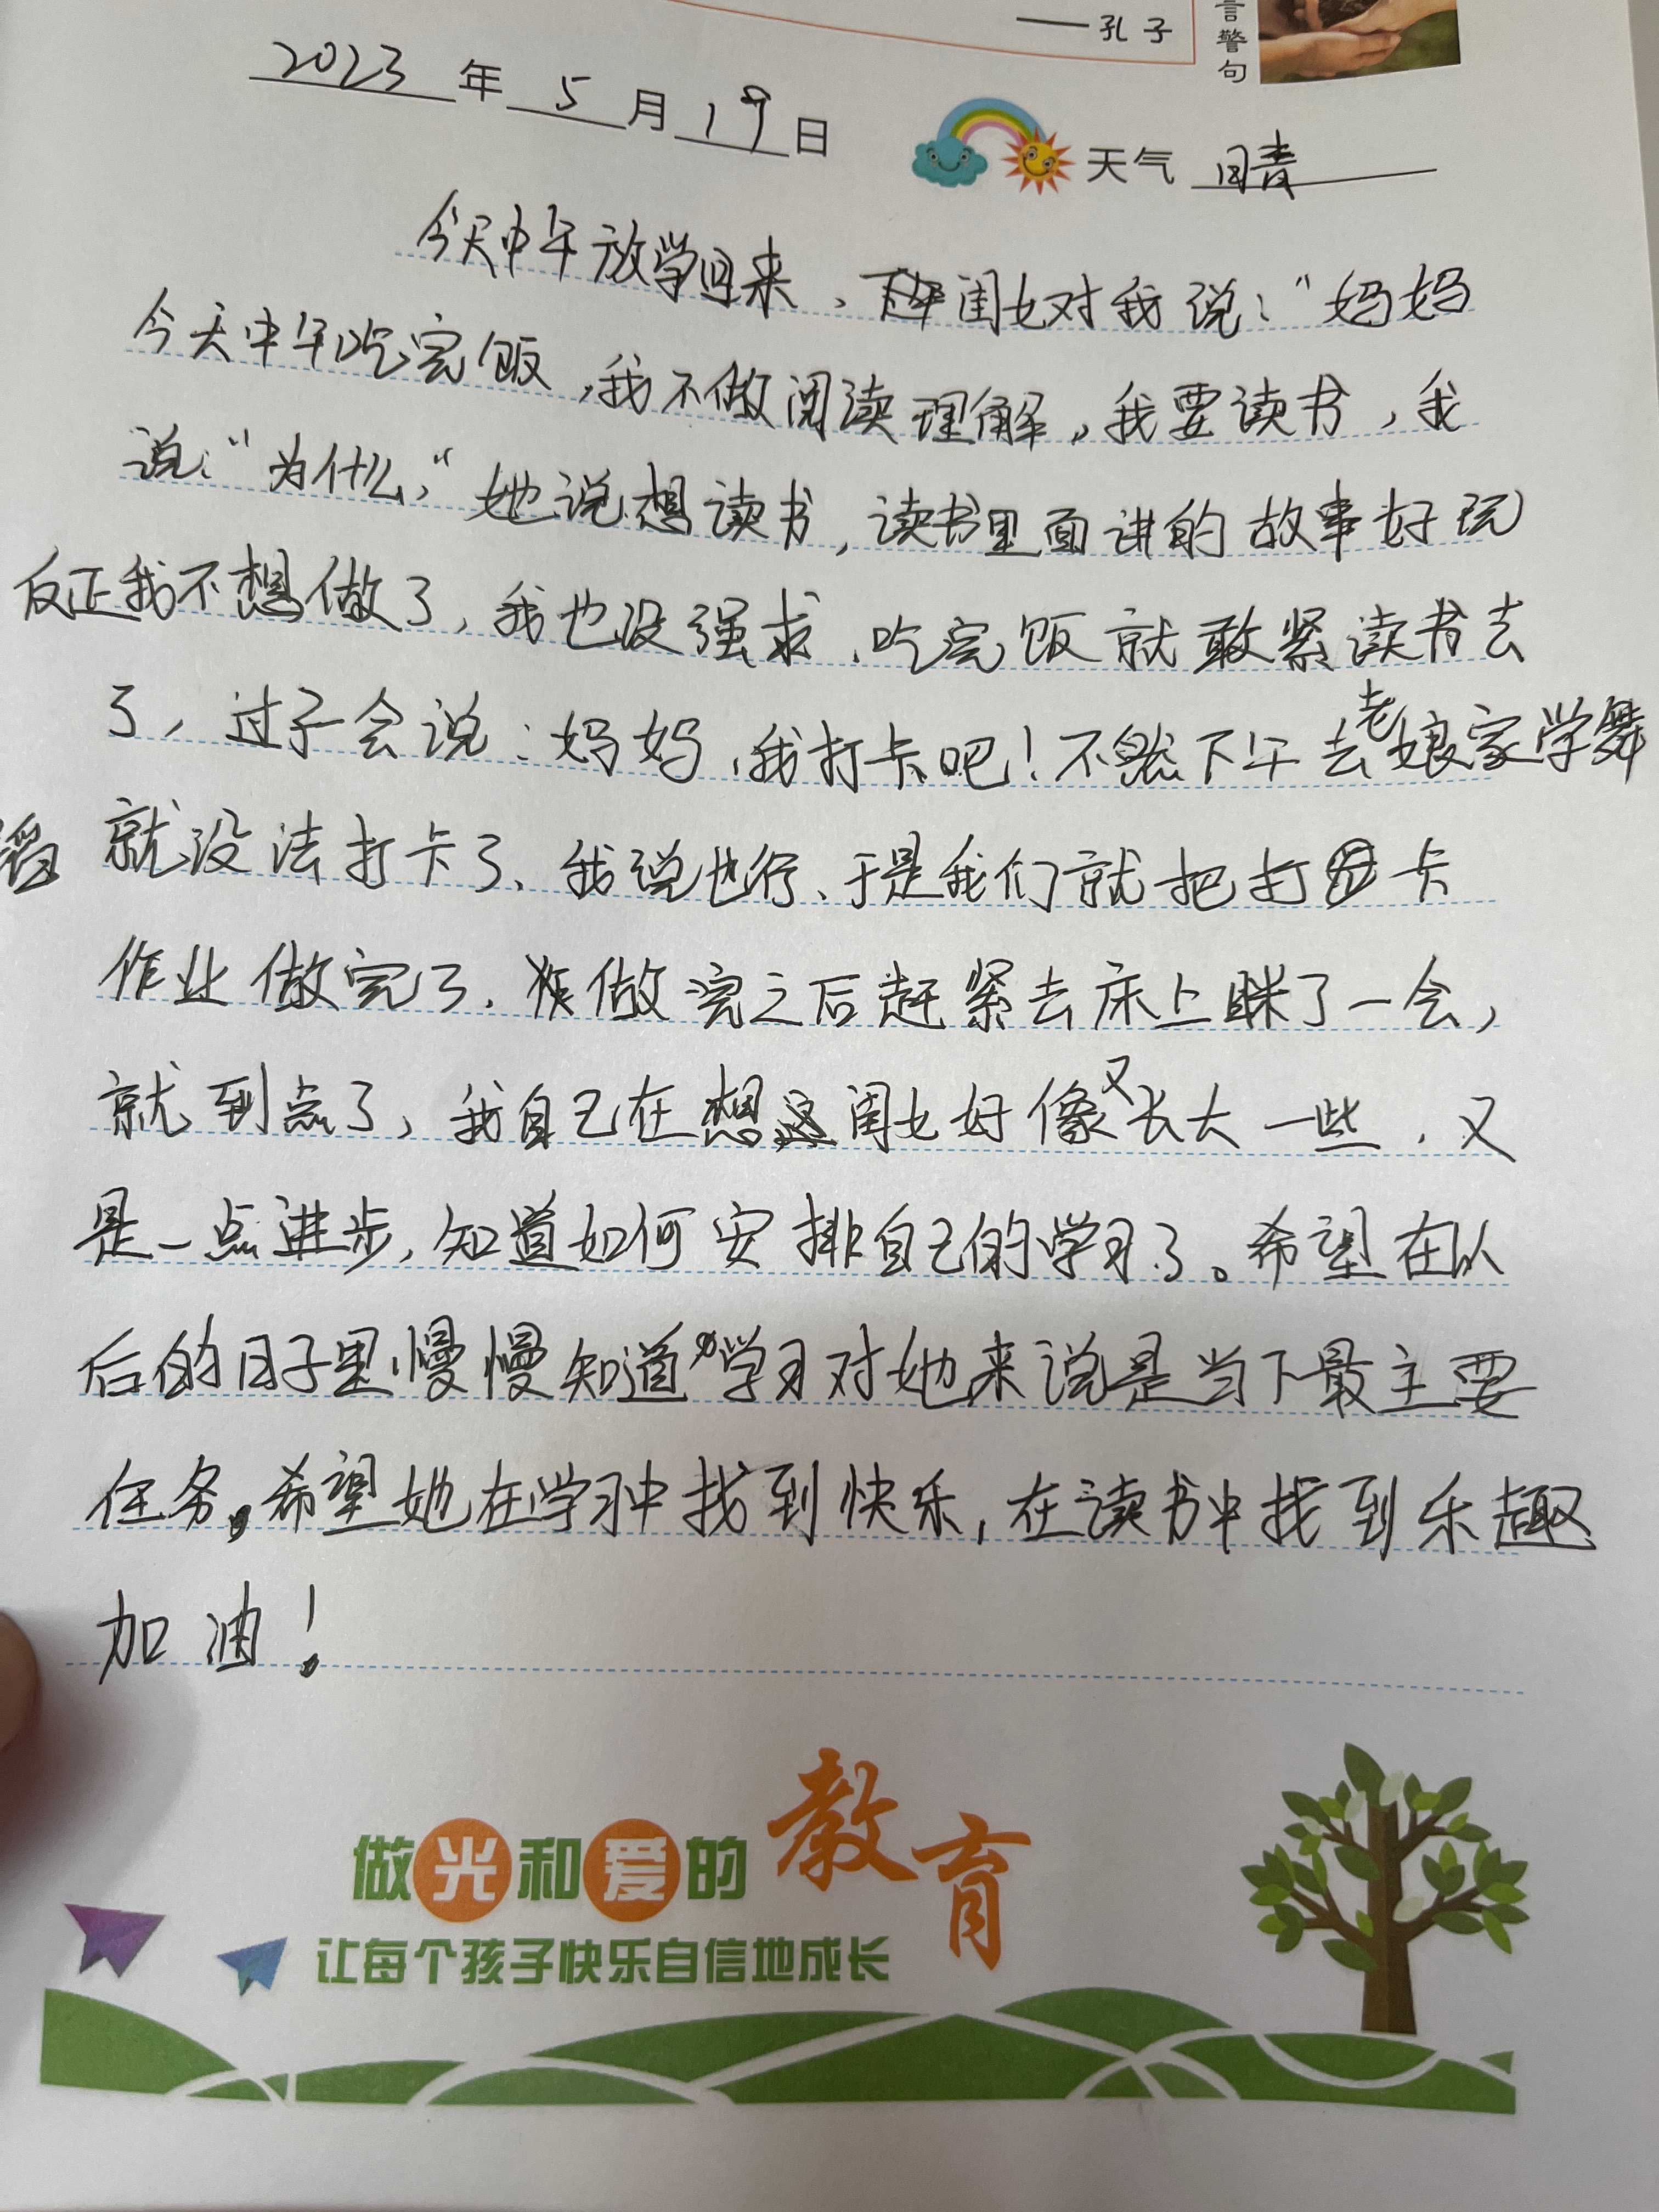 ——孔子
言警句
2023年5月19日
天气 晴
今天中午放学回来，闺女对我说："妈妈
今天中午吃完饭，我不做阅读理解，我要读书，我
说："为什么，"她说想读书，读书里面讲的故事好玩
反正我不想做了，我也没强求，吃完饭就敢紧读书去
了，过子会说：妈妈，我打卡吧！不然下午去老娘家学舞
蹈就没法打卡了、我说也行、于是我们就把打卡
作业做完了、做完之后赶紧去床上眯了一会，
就到点了，我自己在想这闺女好像又长大一些，又
是一点进步，知道如何安排自己的学习了。希望在以
后的日子里，慢慢知道学习对她来说是当下最主要
任务。希望她在学习中找到快乐，在读书中找到乐趣
加油！
做光和爱的教育
让每个孩子快乐自信地成长